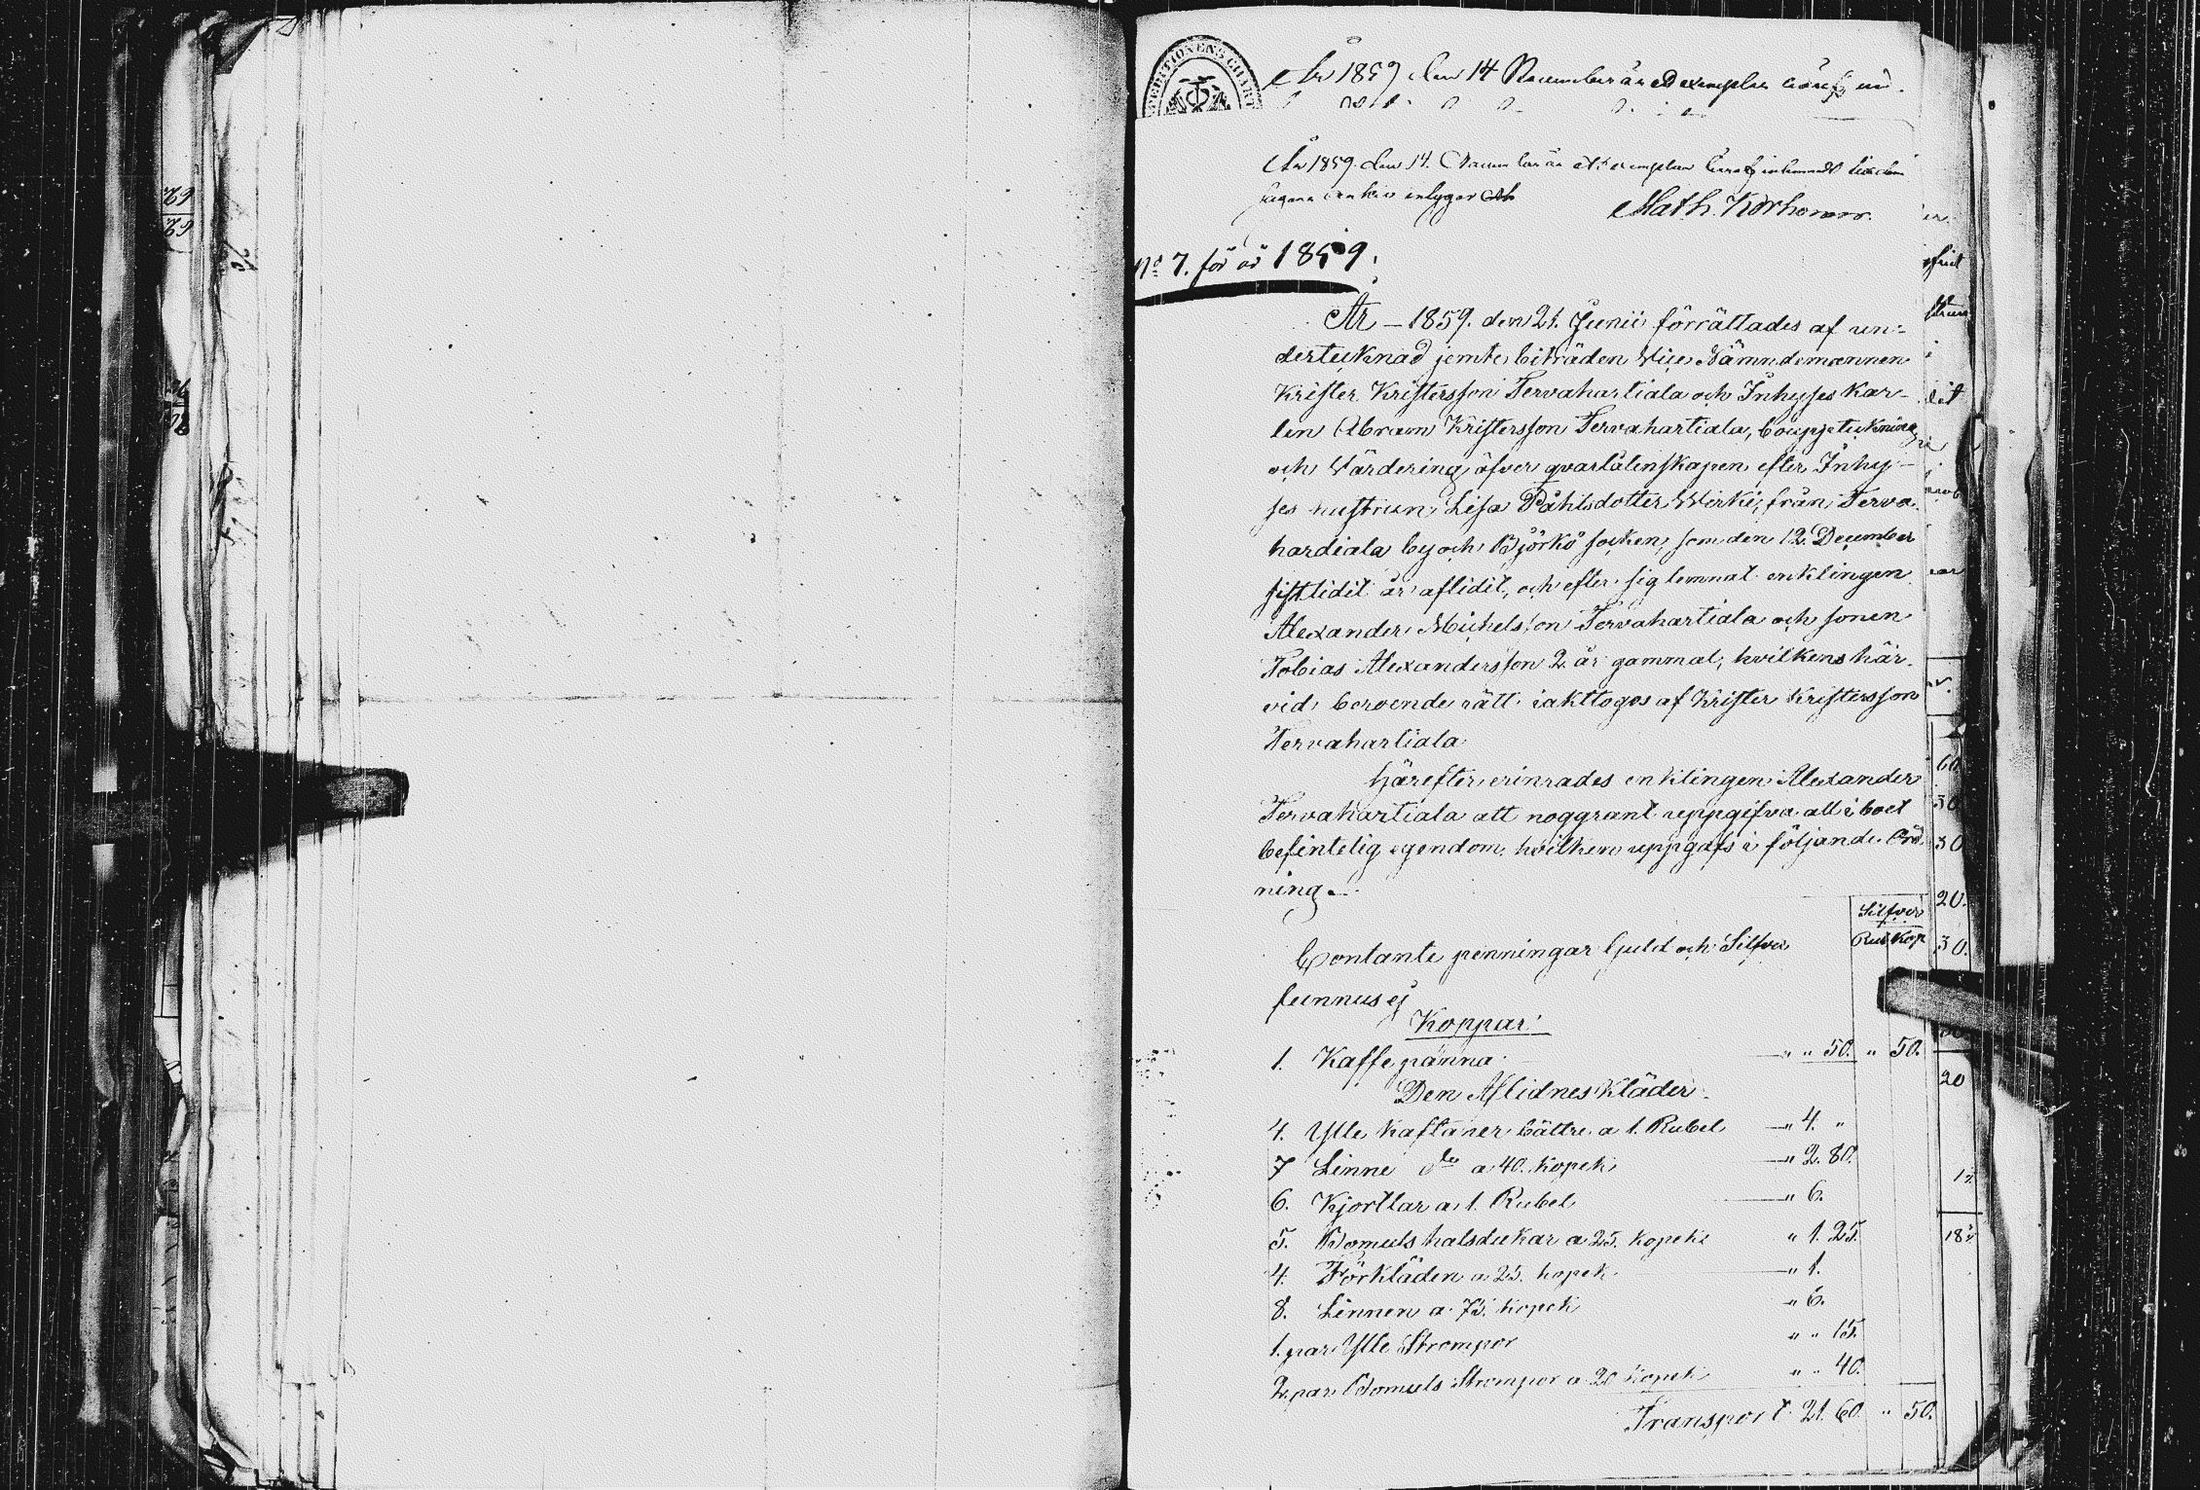 År 1859 den 14 December är ett exemplar häraf in
År 1859. den 14. December är ett exemplar häraf inlemnadt
inlyger
Math. Korhonen
No 7. för år 1859.
År – 1859. den 21. Junii förrättades af un-
dertecknad jemte biträden Vice Nämndemannen
Krister Kristersson Tervahartiala och Inhyses kar-
len Abram Kristersson Tervahartiala, bouppteckning
och Värdering öfver qvarlåtenskapen efter Inhy-
ses hustrun Lisa Påhlsdotter Wirki, från Terva
hardiala by och Björkö socken, som den 12 December
sistlidit år aflidit, och efter sig lemnat enklingen
Alexander Michelsson Tervahartiala och sonen
Tobias Alexandersson 2 år gammal, hvilkens här-
vid beroende rätt iakttogos af Krister Kristersson
Tervahartiala
Härefter erinrades enklingen Alexander
Tervahartiala att noggrant uppgifva allt i boet
befintelig egendom, hvilken uppgafs i följande Ord
ning.
Silfver
Rub Kop
Contante penningar Guld och Silfver
funnus ej
Koppar
1. Kaffe panna " " 50. " 50.
Den Aflidnes Kläder.
4. Ylle Kaftaner bättre a 1. Rubel " 4. "
7 Linne do a 40. Kopek " 2. 80.
6. Kjortlar a 1. Rubel " 6.
5. Bomuls halsdukar a 25. Kopek " 1. 25.
4. Förkläden a 25. kopek " 1.
8. Linnen a 75. Kopek " 6.
1. par Ylle Strompor " " 15.
2 par Bomuls Strompor a 20 Kopek " " 40.
Transport 21. 60. " 50.
60
30
30
20.
30.
20